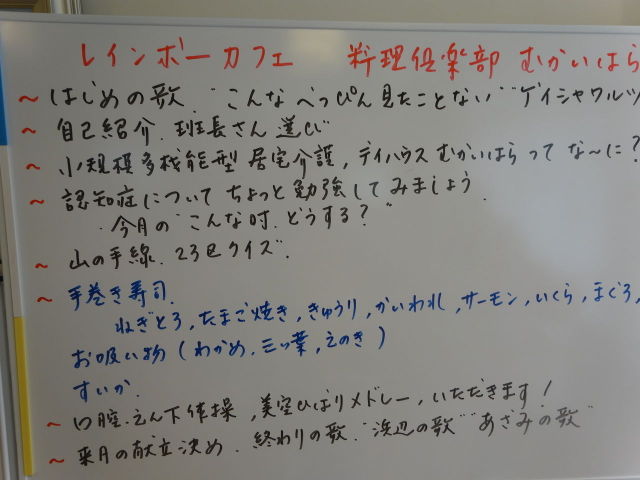 レインボーカフェ 料理倶楽部 むかいはら
～はじめの歌. "こんなべっぴん見たことない" "ゲイシャワルツ
～自己紹介. 班長さん選び
～小規模多機能型居宅介護, デイハウスむかいはらって な～に?
～認知症についてちょっと勉強してみましょう.
・今月の"こんな時.どうする?"
～山の手線. 23区クイズ.
～手巻き寿司.
ねぎとろ,たまご焼き,きゅうり,かいわれ,サーモン,いくら,まぐろ,
お吸い物(わかめ.三ッ葉,えのき)
すいか.
～口腔.えん下体操,美空ひばりメドレー,いただきます!
～来月の献立決め. 終わりの歌."浜辺の歌""あざみの歌"